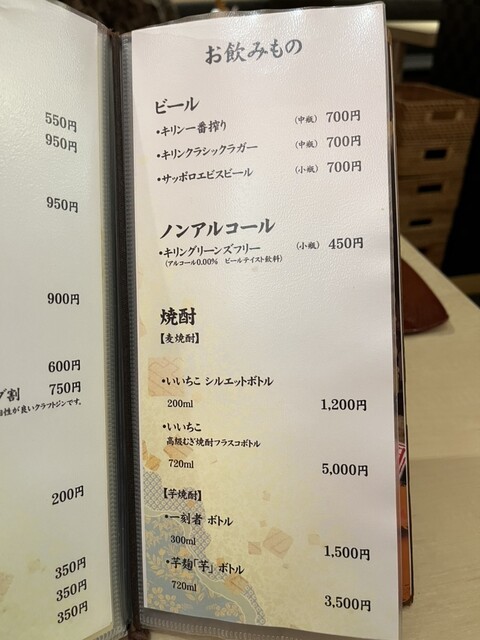 550円
950円
950円
900円
600円
割 750円
性が良いクラフトジンです。
200円
350円
350円
350円
お飲みもの
ビール
・キリン一番搾り (中瓶) 700円
・キリンクラシックラガー (中瓶) 700円
・サッポロエビスビール (小瓶) 700円
ノンアルコール
・キリングリーンズフリー (小瓶) 450円
(アルコール0.00% ビールテイスト飲料)
焼酎
【麦焼酎】
・いいちこ シルエットボトル
200ml 1,200円
・いいちこ
高級むぎ焼酎フラスコボトル
720ml 5,000円
【芋焼酎】
・一刻者 ボトル
300ml 1,500円
・芋麹「芋」ボトル
720ml 3,500円